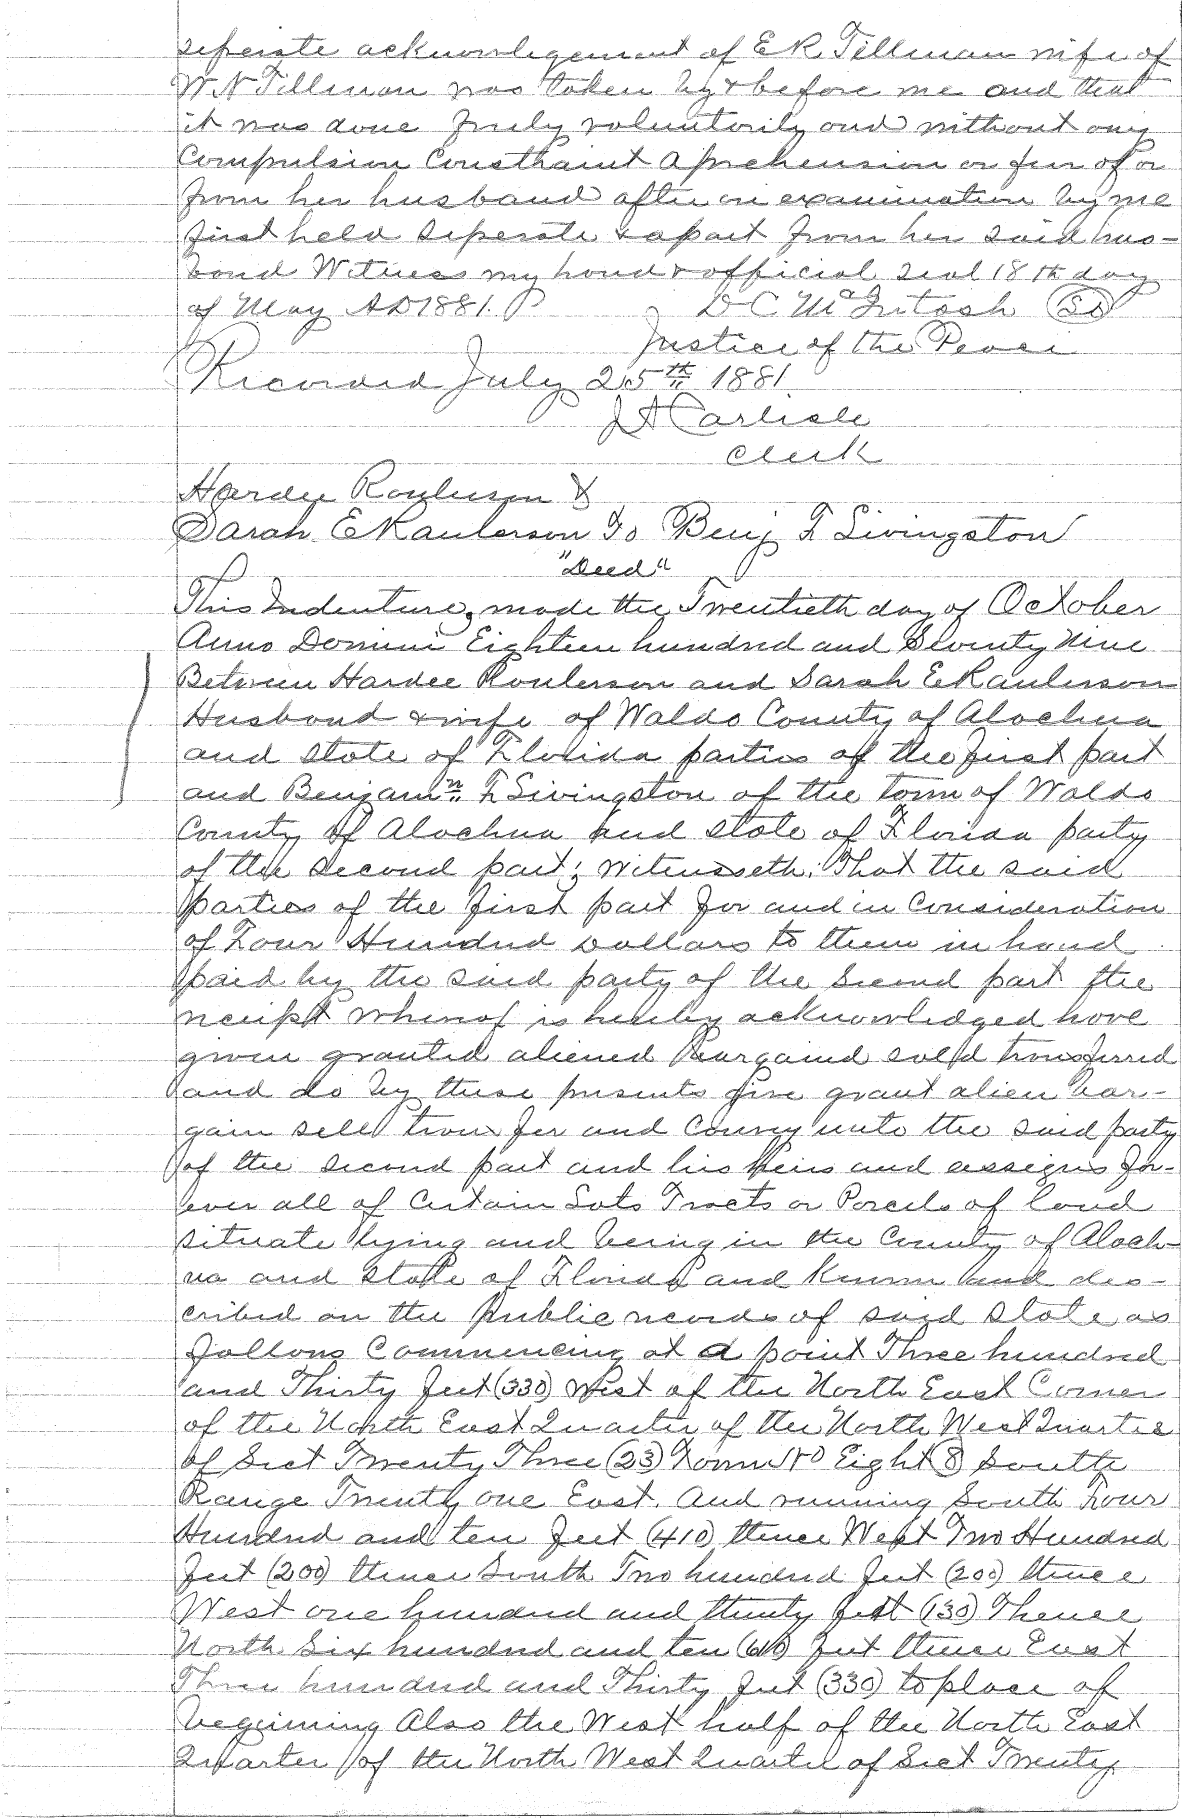 seperate acknowlegement of E R Tillman wife of
W N Tillman was taken by & before me and that
it was done freely voluntarily and without any
Compulsion Constraint Aprehension or fear of or
from her husband after an examination by me
first held seperate & apart from her said hus-
band Witness my hand & official seal 18th day
of May AD 1881. D C McIntosh
Justice of the Peace
Recorded July 25th 1881
J A Carlisle
Clerk
Hardee Roulerson &
Sarah E Raulerson To Benj F Livingston
"Deed"
This Indenture, made the Twentieth day of October
Anno Domini Eighteen hundred and Seventy Nine
Between Hardee Roulerson and Sarah E Raulerson
Husband & wife of Waldo County of Alachua
and State of Florida parties of the first part
and Benjamn F Livingston of the town of Waldo
County of Alachua and State of Florida party
of the second part; Witnesseth: That the said
parties of the first part for and in Consideration
of Four Hundred Dollars to them in hand
paid by the said party of the Second part the
receipt whereof is hereby acknowledged have
given granted aliened Bargained sold transferred
and do by these presents give grant alien bar-
gain sell transfer and Convey unto the said party
of the second part and his heirs and assigns for-
ever all of Certain Lots Tracts or Parcels of land
situate lying and being in the County of Alach-
ua and State of Florida and Known and des-
cribed on the public records of said State as
follows Commencing at a point Three hundred
and Thirty feet (330) West of the North East Corner
of the North East Quarter of the North West Quarter
of Sect Twenty Three (23) Town No Eight (8) South
Range Twenty one East. And running South Four
Hundred and ten feet (410) thence West Two Hundred
feet (200) thence South Two hundred feet (200) thence
West one hundred and thirty feet (130) Thence
North Six hundred and ten (610) feet thence East
Three hundred and Thirty feet (330) to place of
beginning Also the West half of the North East
Quarter of the North West Quarter of Sect Twenty